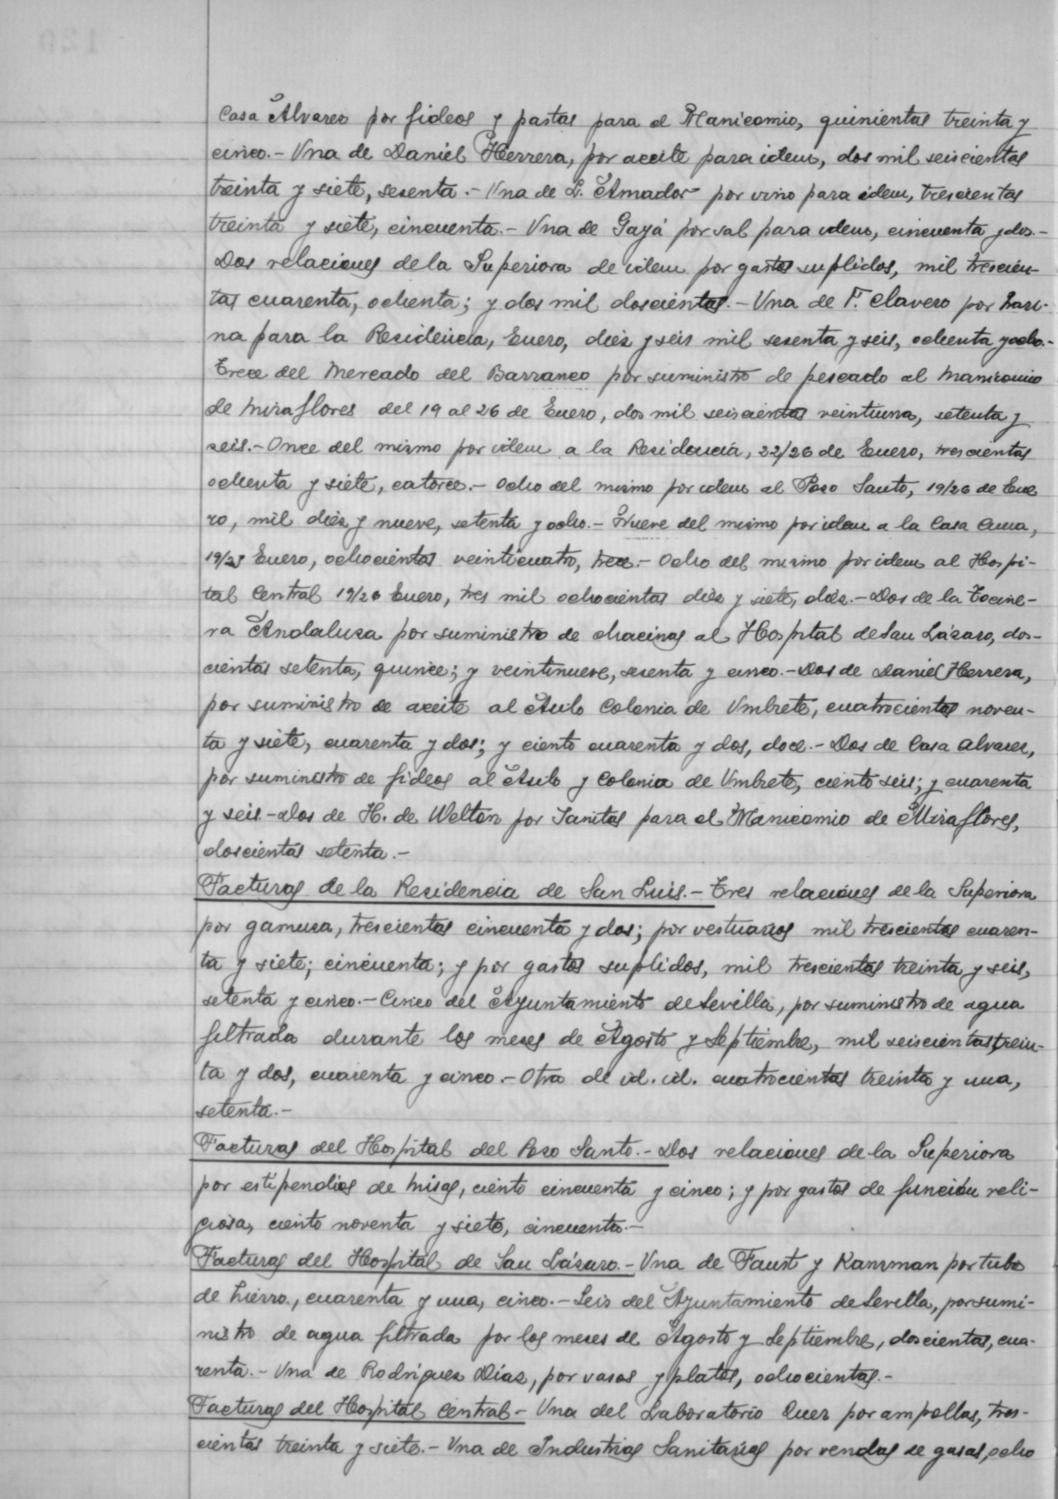 Casa Alvarez por fideos y pastas para el Manicomio, quinientas treinta y
cinco.- Una de Daniel Herrera, por aceite para idem, dos mil seiscientas
treinta y siete, sesenta.- Una de L. Amador por vino para idem, trescientas
treinta y siete, cincuenta.- Una de Gayá por sal para idem, cincuenta y dos.-
Dos relaciones de la Superiora de idem por gastos suplidos, mil trescien-
tas cuarenta, ochenta; y dos mil doscientas.- Una de F. Clavero por hari-
na para la Residencia, Enero, diez y seis mil sesenta y seis, ochenta y ocho.-
Trece del Mercado del Barranco por suministro de pescado al Manicomio
de Miraflores del 19 al 26 de Enero, dos mil seiscientas veintiuna, setenta y
seis.- Once del mismo por idem a la Residencia, 22/26 de Enero, trescientas
ochenta y siete, catorce.- Ocho del mismo por idem al Pozo Santo, 19/26 de Ene
ro, mil diez y nueve, setenta y ocho.- Nueve del mismo por idem a la Casa Cuna,
Enero, ochocientas veinticuatro, trece.- Ocho del mismo por idem al Hospi-
tal Central 19/26 Enero, tres mil ochocientas diez y siete, diez.- Dos de la Tocine-
ra Andaluza por suministro de chacinas al Hospital de San Lázaro, dos-
cientas setenta, quince; y veintinueve, sesenta y cinco.- Dos de Daniel Herrera,
por suministro de aceite al Asilo Colonia de Umbrete, cuatrocientas noven-
ta y siete, cuarenta y dos; y ciento cuarenta y dos, doce.- Dos de Casa Alvarez,
por suministro de fideos al Asilo y Colonia de Umbrete, ciento seis; y cuarenta
y seis.- Dos de H. de Welton por Sanitas para el Manicomio de Miraflores,
doscientas setenta.-
Facturas de la Residencia de San Luis.- Tres relaciones de la Superiora
por gamuza, trescientas cincuenta y dos; por vestuarios mil trescientas cuaren-
ta y siete; cincuenta; y por gastos suplidos, mil trescientas treinta y seis,
setenta y cinco.- Cinco del Ayuntamiento de Sevilla, por suministro de agua
filtrada durante los meses de Agosto y Septiembre, mil seiscientas, trein-
ta y dos, cuarenta y cinco.- Otra de id. id. cuatrocientas treinta y una,
setenta.-
Facturas del Hospital del Pozo Santo.- Dos relaciones de la Superiora
por estipendios de misas, ciento cincuenta y cinco; y por gastos de función reli-
giosa, ciento noventa y siete, cincuenta.-
Facturas del Hospital de San Lázaro.- Una de Faust y Kanzman por tubo
de hierro, cuarenta y una, cinco.- Seis del Ayuntamiento de Sevilla, por sumi-
nistro de agua filtrada por los meses de Agosto y Septiembre, doscientas, cua-
renta.- Una de Rodriguez Díaz, por vasos y platos, ochocientas.-
Facturas del Hospital Central.- Una del Laboratorio Quer por ampollas, tres-
cientas treinta y siete.- Una de Industrias Sanitarias por vendas de gasas, ocho